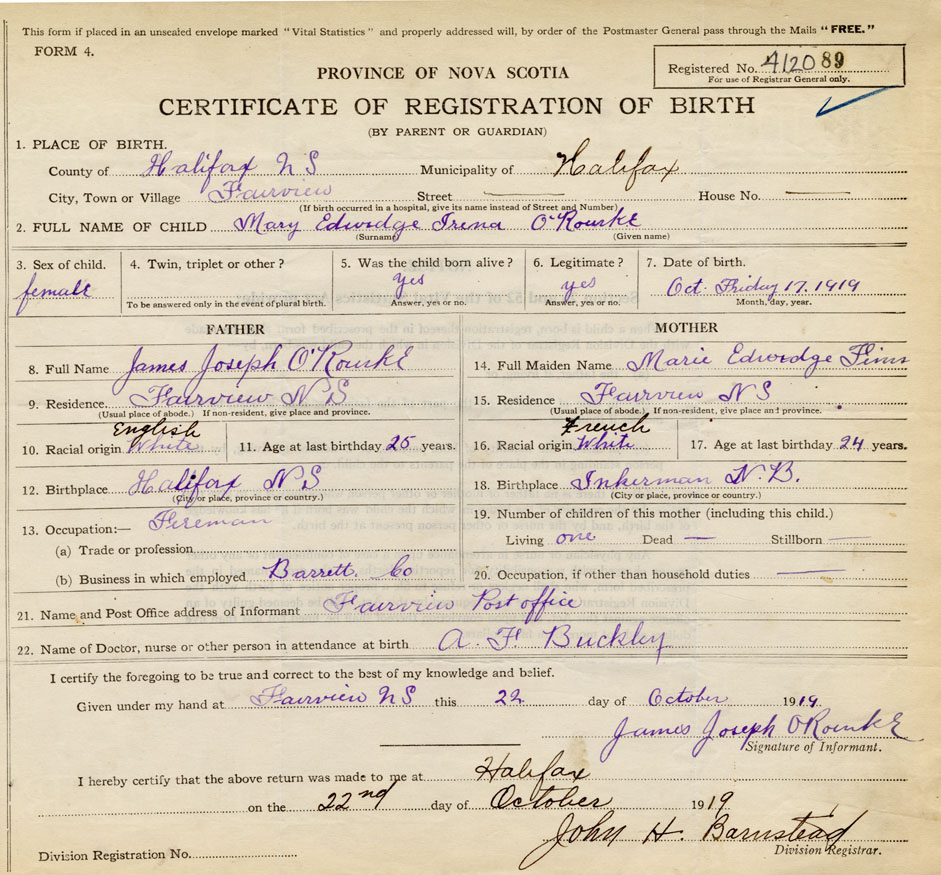 This form if placed in an unsealed envelope marked "Vital Statistics" and properly addressed will, by order of the Postmaster General pass through the Mails "FREE."
FORM 4.
Registered No. 412089
For use of Registrar General only.
PROVINCE OF NOVA SCOTIA
CERTIFICATE OF REGISTRATION OF BIRTH
(BY PARENT OR GUARDIAN)
1. PLACE OF BIRTH.
County of Halifax N S Municipality of Halifax
City, Town or Village Fairview Street House No.
(If birth occurred in a hospital, give its name instead of Street and Number)
2. FULL NAME OF CHILD Mary Edwidge Irena O'Rourke
(Surname) (Given name)
3. Sex of child. 4. Twin, triplet or other? 5. Was the child born alive? 6. Legitimate? 7. Date of birth.
female yes yes Oct. Friday 17. 1919
To be answered only in the event of plural birth. Answer, yes or no. Answer, yes or no. Month, day, year.
FATHER MOTHER
8. Full Name James Joseph O'Rourke 14. Full Maiden Name Marie Edwidge Finn
9. Residence. Fairview N S 15. Residence Fairview N S
(Usual place of abode.) If non-resident, give place and province. (Usual place of abode.) If non-resident, give place and province.
English French
10. Racial origin White 11. Age at last birthday 25 years. 16. Racial origin White 17. Age at last birthday 24 years.
12. Birthplace Halifax N S 18. Birthplace Inkerman N.B.
(City or place, province or country.) (City or place, province or country.)
13. Occupation:— Fireman 19. Number of children of this mother (including this child.)
(a) Trade or profession Living one Dead — Stillborn —
(b) Business in which employed Barrett. Co 20. Occupation, if other than household duties —
21. Name and Post Office address of Informant Fairview Post office
22. Name of Doctor, nurse or other person in attendance at birth A. F. Buckley
I certify the foregoing to be true and correct to the best of my knowledge and belief.
Given under my hand at Fairview N S this 22. day of October 1919.
James Joseph O'Rourke
Signature of Informant.
I hereby certify that the above return was made to me at Halifax
on the 22nd day of October 1919
John H. Barnstead
Division Registrar.
Division Registration No.